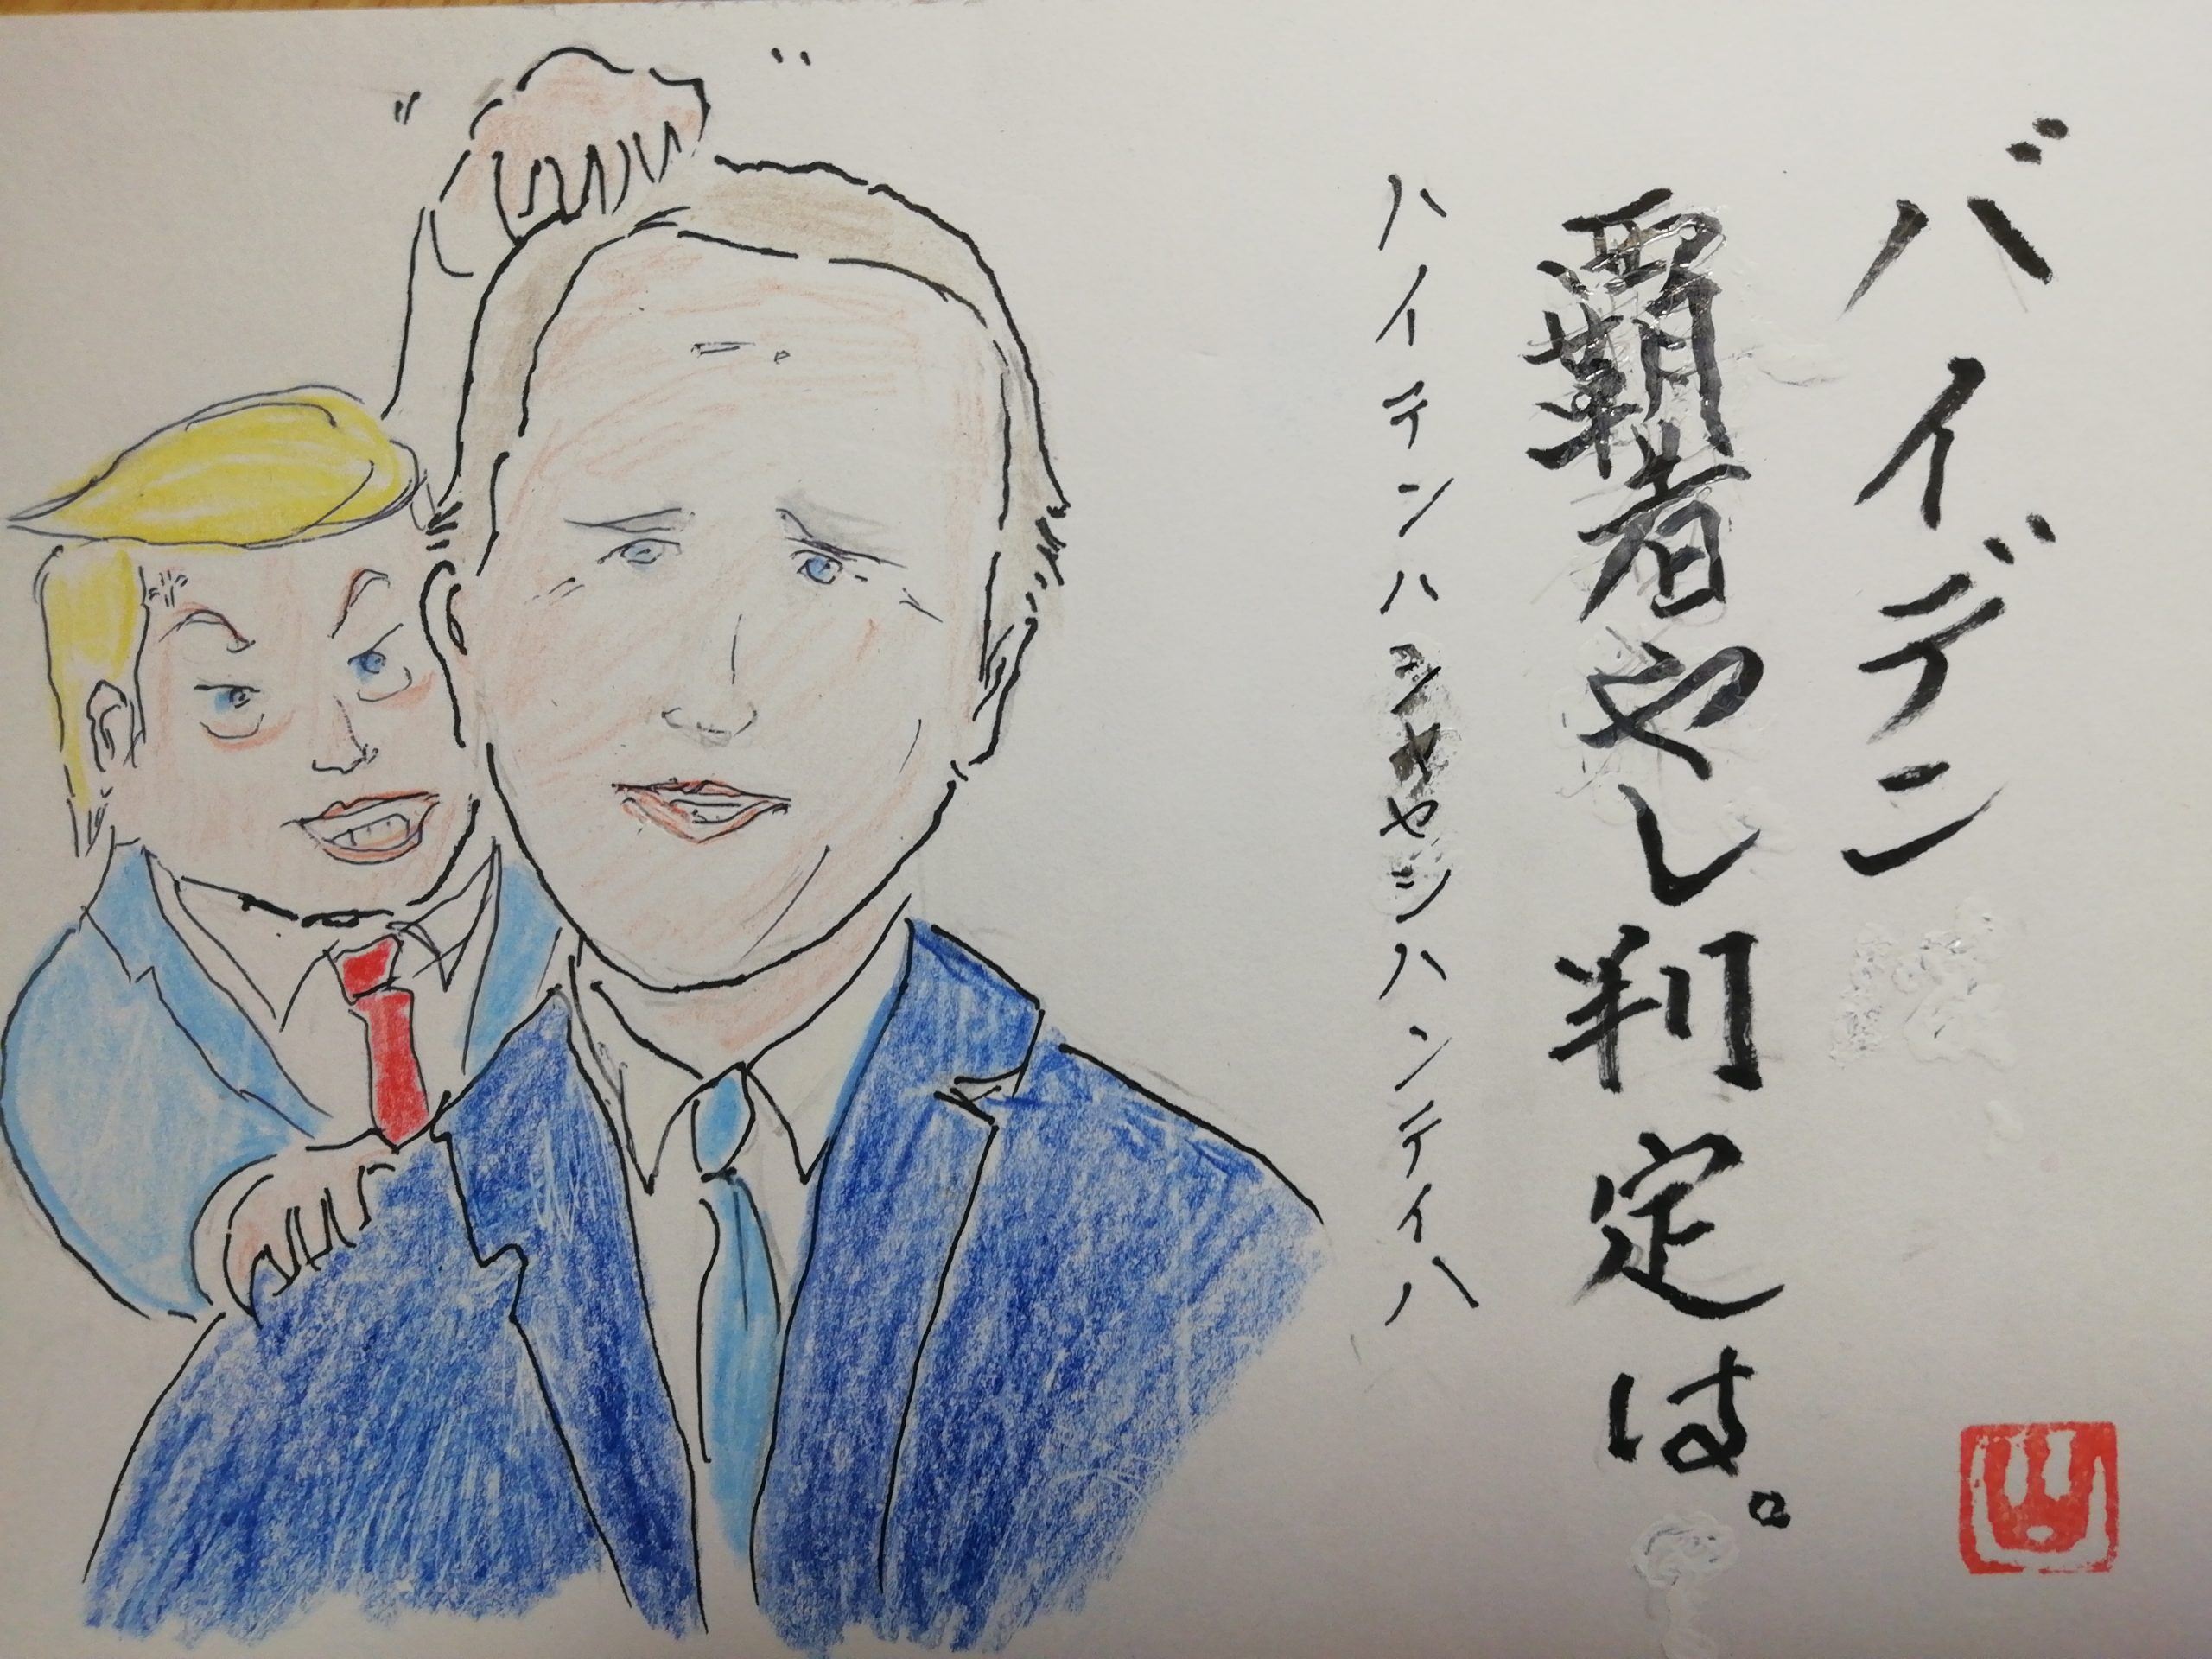 バイデン
覇者やし判定は。
ハイテンハシヤヤシハンテイハ